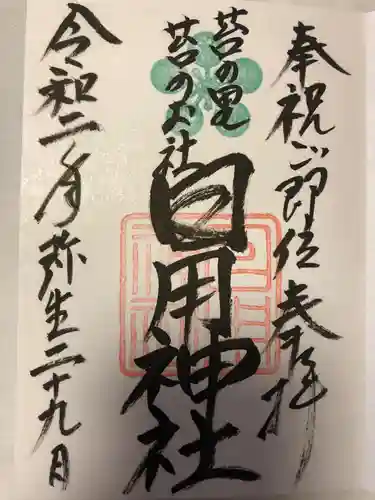 奉祝ご即位 奉拝
苔の里
苔のお社
日用神社
令和二年弥生二十九日